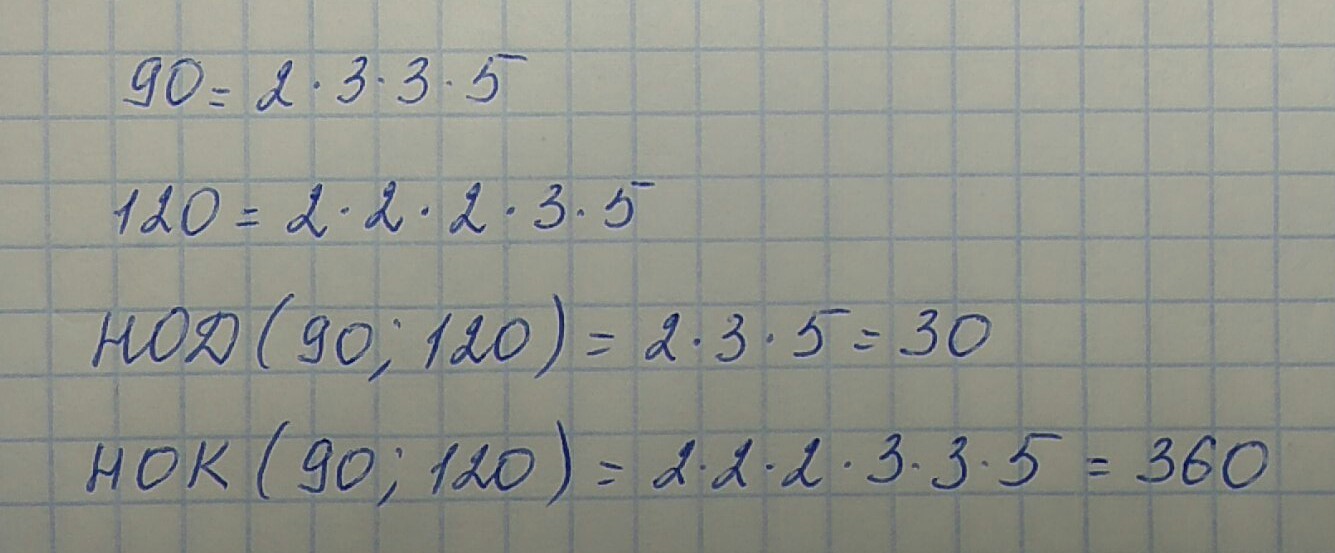 90 = 2 · 3 · 3 · 5
120 = 2 · 2 · 2 · 3 · 5
НОД (90; 120) = 2 · 3 · 5 = 30
НОК (90; 120) = 2 · 2 · 2 · 3 · 3 · 5 = 360